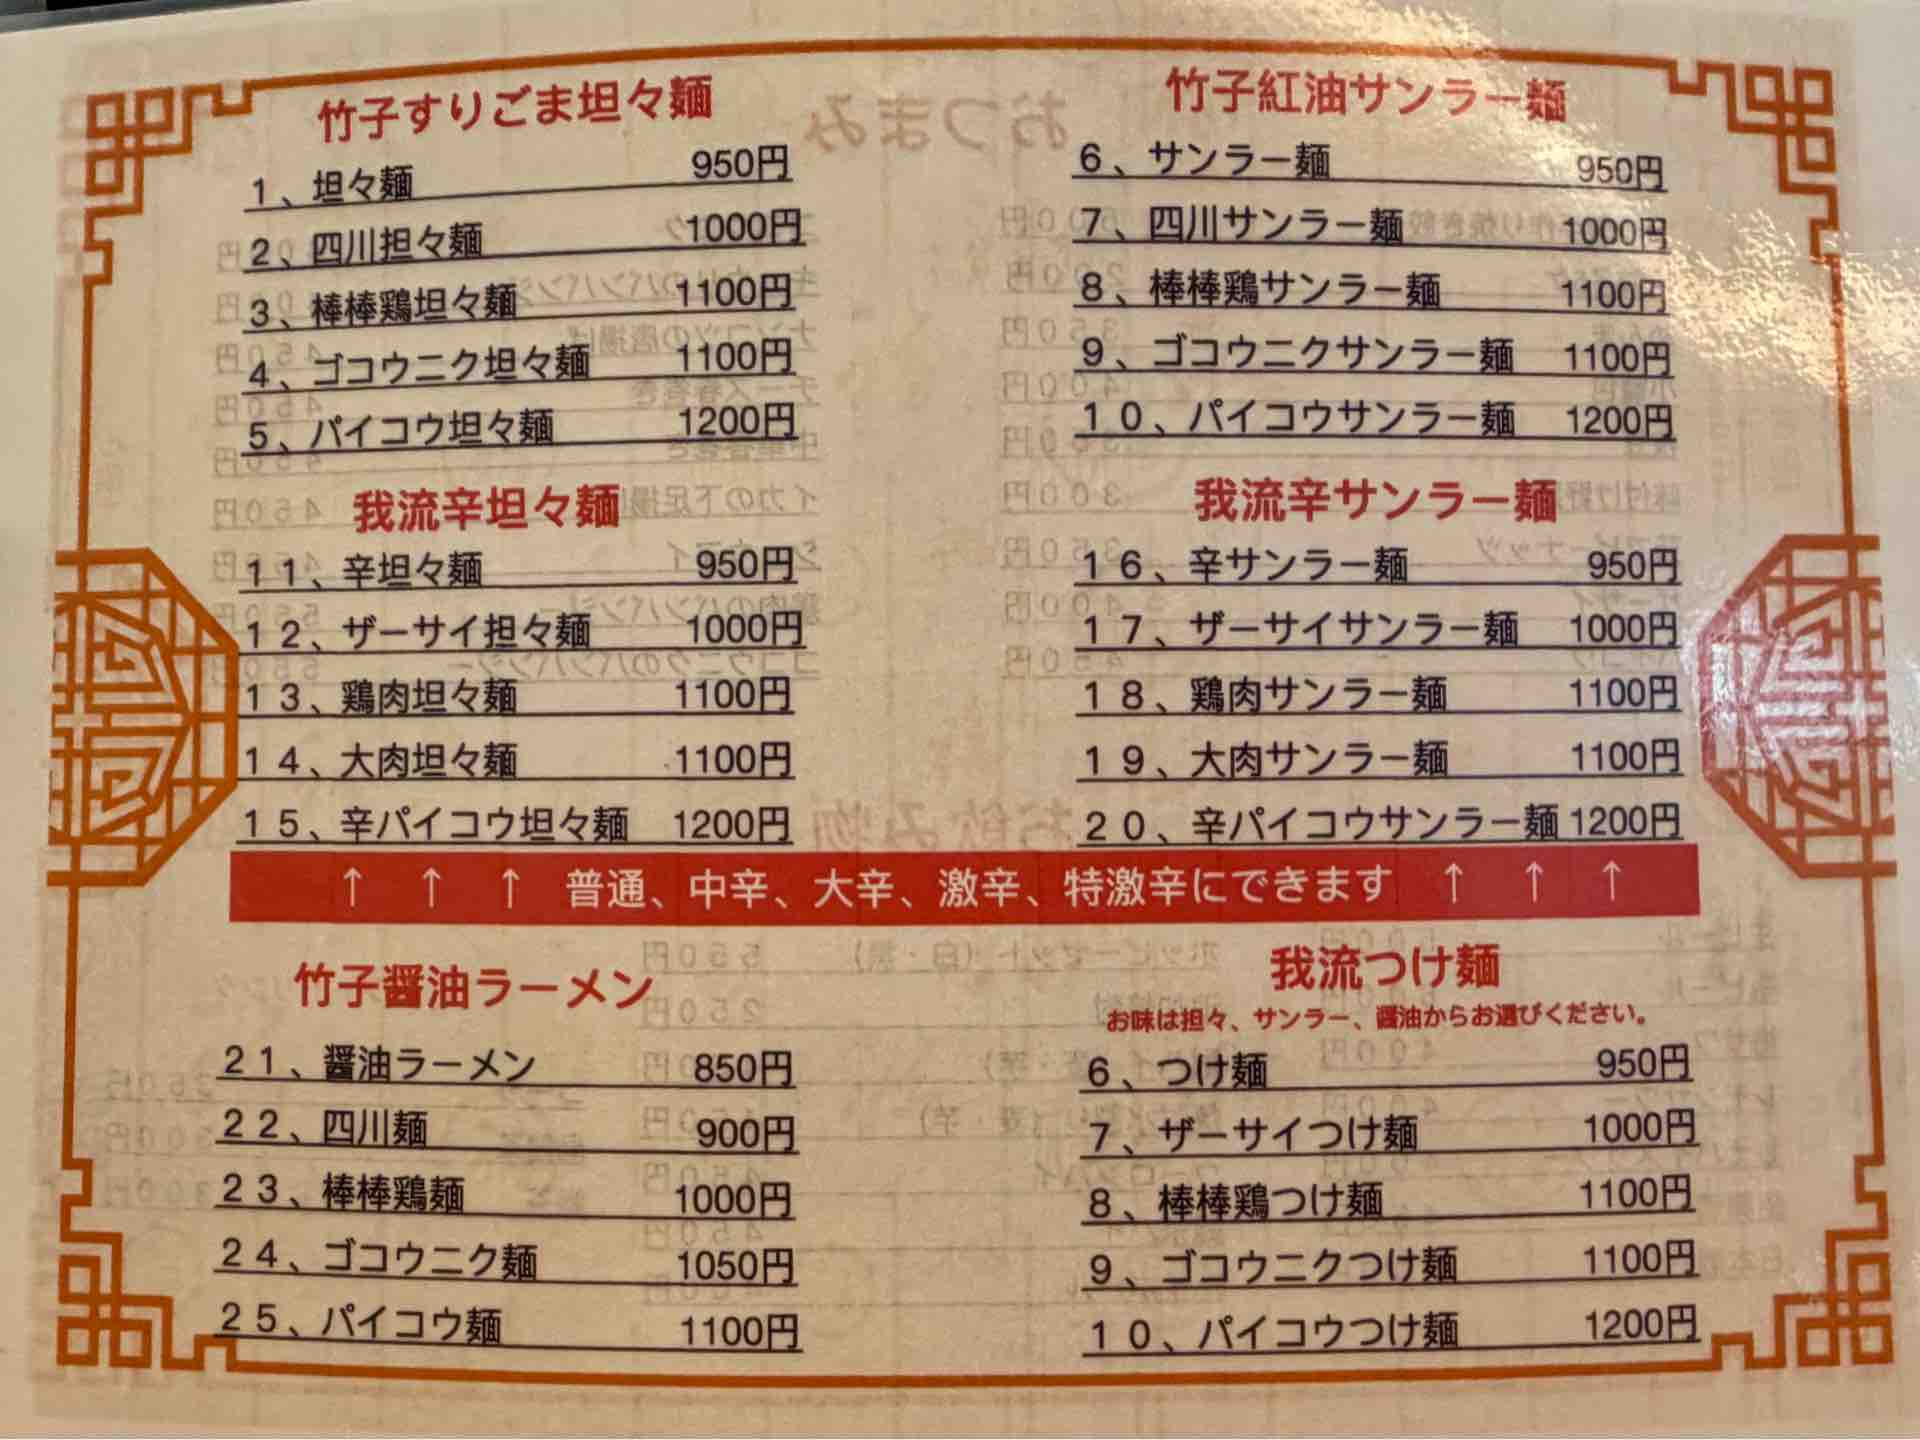 竹子すりごま坦々麺
1、坦々麺 950円
2、四川担々麺 1000円
3、棒棒鶏坦々麺 1100円
4、ゴコウニク坦々麺 1100円
5、パイコウ坦々麺 1200円
竹子紅油サンラー麺
6、サンラー麺 950円
7、四川サンラー麺 1000円
8、棒棒鶏サンラー麺 1100円
9、ゴコウニクサンラー麺 1100円
10、パイコウサンラー麺 1200円
我流辛坦々麺
11、辛坦々麺 950円
12、ザーサイ担々麺 1000円
13、鶏肉坦々麺 1100円
14、大肉坦々麺 1100円
15、辛パイコウ坦々麺 1200円
我流辛サンラー麺
16、辛サンラー麺 950円
17、ザーサイサンラー麺 1000円
18、鶏肉サンラー麺 1100円
19、大肉サンラー麺 1100円
20、辛パイコウサンラー麺 1200円
↑ ↑ ↑ 普通、中辛、大辛、激辛、特激辛にできます ↑ ↑ ↑
竹子醤油ラーメン
21、醤油ラーメン 850円
22、四川麺 900円
23、棒棒鶏麺 1000円
24、ゴコウニク麺 1050円
25、パイコウ麺 1100円
我流つけ麺
お味は担々、サンラー、醤油からお選びください。
6、つけ麺 950円
7、ザーサイつけ麺 1000円
8、棒棒鶏つけ麺 1100円
9、ゴコウニクつけ麺 1100円
10、パイコウつけ麺 1200円